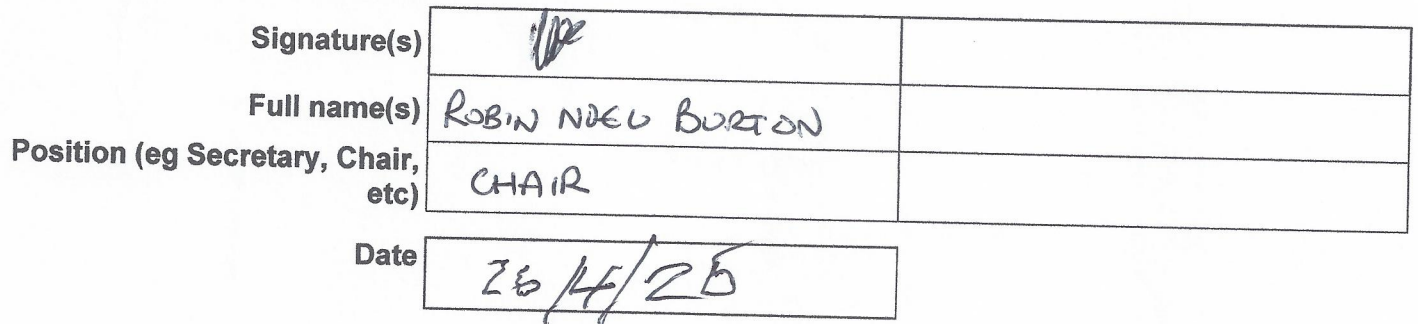 Signature(s)
Full name(s) ROBIN NOEL BURTON
Position (eg Secretary, Chair,
etc) CHAIR
Date